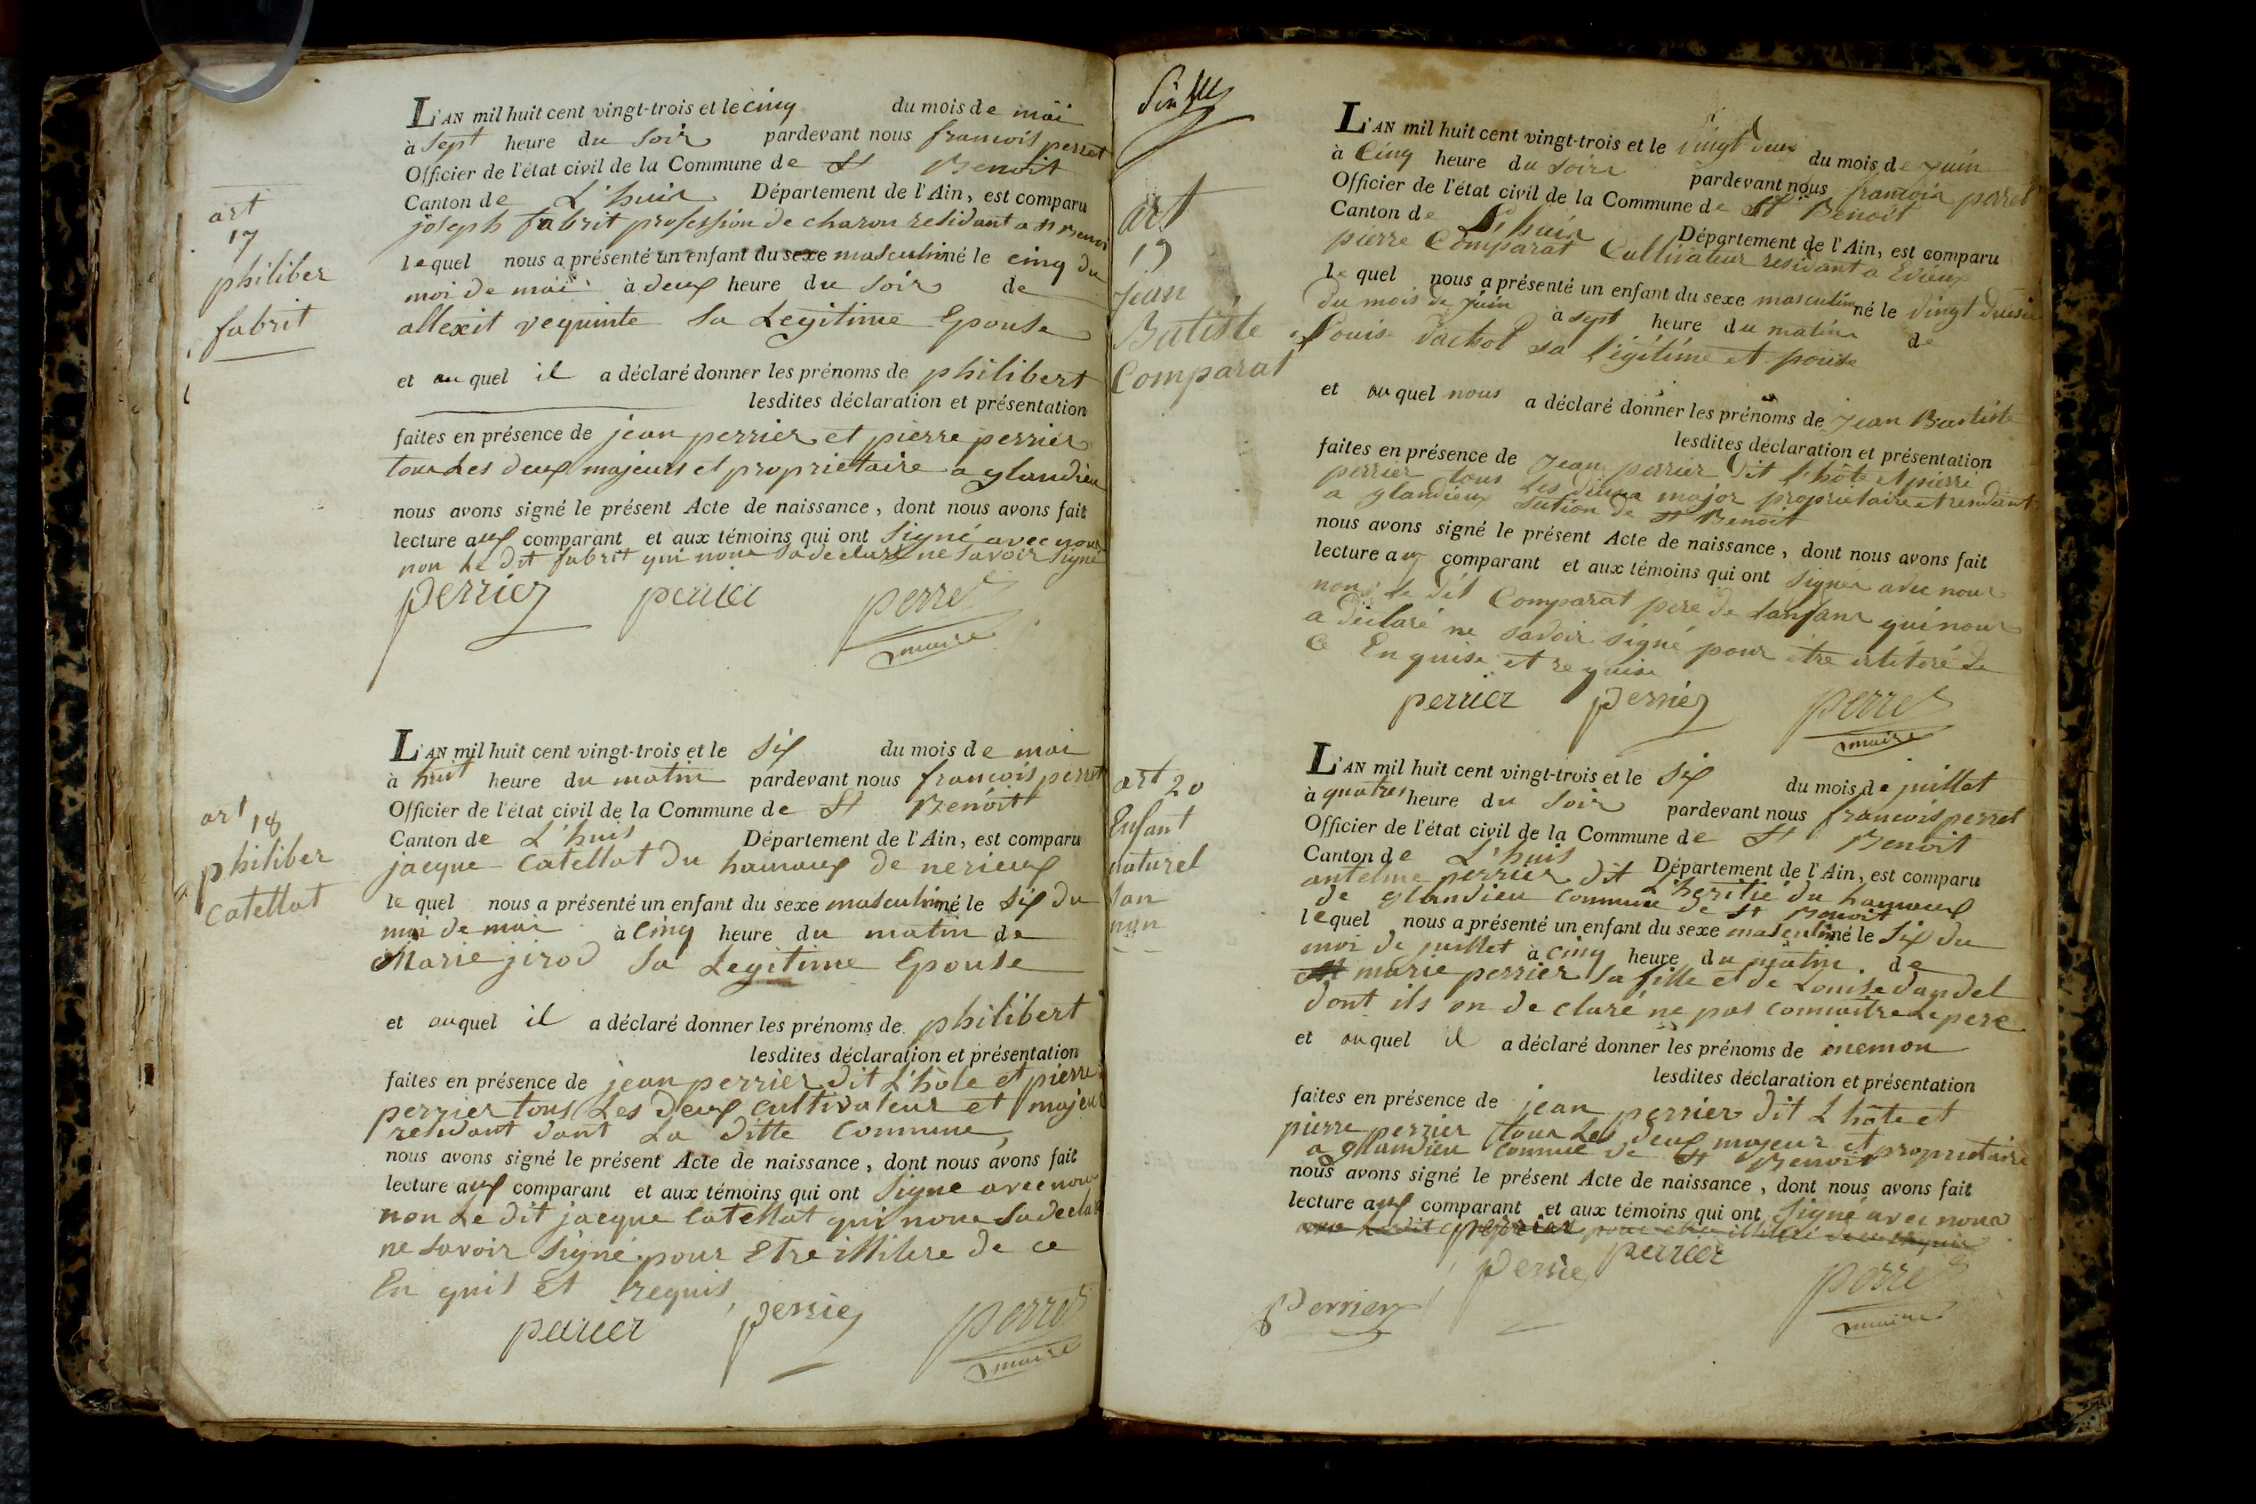 art
17
philiber
fabrit
L'AN mil huit cent vingt-trois et le cinq du mois de mai
à sept heure du soir pardevant nous francois perret
Officier de l'état civil de la Commune de St Benoit
Canton de L'huis Département de l'Ain, est comparu
joseph fabrit profession de charon residant a St Benoi
lequel nous a présenté un enfant du sexe masculin né le cinq du
moi de mai à deux heure du soir de
allexit vequinte sa Legitime Epouse
et auquel il a déclaré donner les prénoms de philibert
lesdites déclaration et présentation
faites en présence de jean perrier et pierre perrier
tous Les deux majeurs et proprietaire a glandieu
nous avons signé le présent Acte de naissance, dont nous avons fait
lecture aux comparant et aux témoins qui ont signé avec nous
non Le dit fabrit qui nous sa declaré ne savoir signe
perrier perrier perret
maire
art
18
philiber
catellat
L'AN mil huit cent vingt-trois et le six du mois de mai
à huit heure du matin pardevant nous francois perret
Officier de l'état civil de la Commune de St Benoit
Canton de L'huis Département de l'Ain, est comparu
jacque Catellat du hamaux de nerieux
lequel nous a présenté un enfant du sexe masculin né le six du
moi de mai à cinq heure du matin de
Marie jirod sa Legitime Epouse
et auquel il a déclaré donner les prénoms de philibert
lesdites déclaration et présentation
faites en présence de jean perrier dit L'hôte et pierre
perrier tous Les deux cultivateur et majeur
residant dant La ditte Commune
nous avons signé le présent Acte de naissance, dont nous avons fait
lecture aux comparant et aux témoins qui ont signe avec nous
non Le dit jacque Catellat qui nous sa declaré
ne savoir signé pour Etre illitere de ce
En quis Et requis
perrier perrier perret
maire
art
19
Jean
Batiste
Comparat
L'AN mil huit cent vingt-trois et le vingt deux du mois de juin
à cinq heure du soir pardevant nous francois perret
Officier de l'état civil de la Commune de St Benoit
Canton de L'huis Département de l'Ain, est comparu
pierre Comparat Cultivateur residant a Evieux
lequel nous a présenté un enfant du sexe masculin né le vingt
du mois de juin à sept heure du matin de
Louise vachot sa légitime et pouse
et auquel nous a déclaré donner les prénoms de Jean Baptiste
lesdites déclaration et présentation
faites en présence de Jean perrier dit l'hôte et pierre
perrier tous Les deux major propriétaire et residant
a glandieux section de St Benoit
nous avons signé le présent Acte de naissance, dont nous avons fait
lecture aux comparant et aux témoins qui ont signer avec nous
non le dit Comparat pere de Lanfant qui nous
a déclaré ne savoir signé pour être de
ce En quise et requise
perrier perrier perret
maire
art 20
Enfant
naturel
san
non
L'AN mil huit cent vingt-trois et le six du mois de juillat
à quatres heure du soir pardevant nous francois perret
Officier de l'état civil de la Commune de St Benoit
Canton de L'huis Département de l'Ain, est comparu
antelme perrier dit L'heritié du hamaux
de glandieu commune de St Benoit
lequel nous a présenté un enfant du sexe masculin né le six du
moi de juillet à cinq heure du matin de
marie perrier sa fille et de Louise dandel
dont ils on de claré ne pas connaitre Le pere
et auquel il a déclaré donner les prénoms de inemon
lesdites déclaration et présentation
faites en présence de jean perrier dit L hôte et
pierre perrier tous Les deux majeur et proprietaire
a glandieu commue de St Benoit
nous avons signé le présent Acte de naissance, dont nous avons fait
lecture aux comparant et aux témoins qui ont signé avec nous
perrier perrier perrier perret
maire